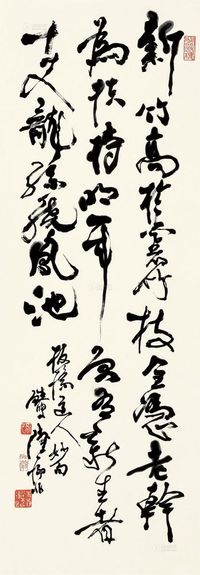 新竹高於舊竹枝全憑老幹
為扶持明年再有新生者
十丈龍孫繞鳳池
板橋道人